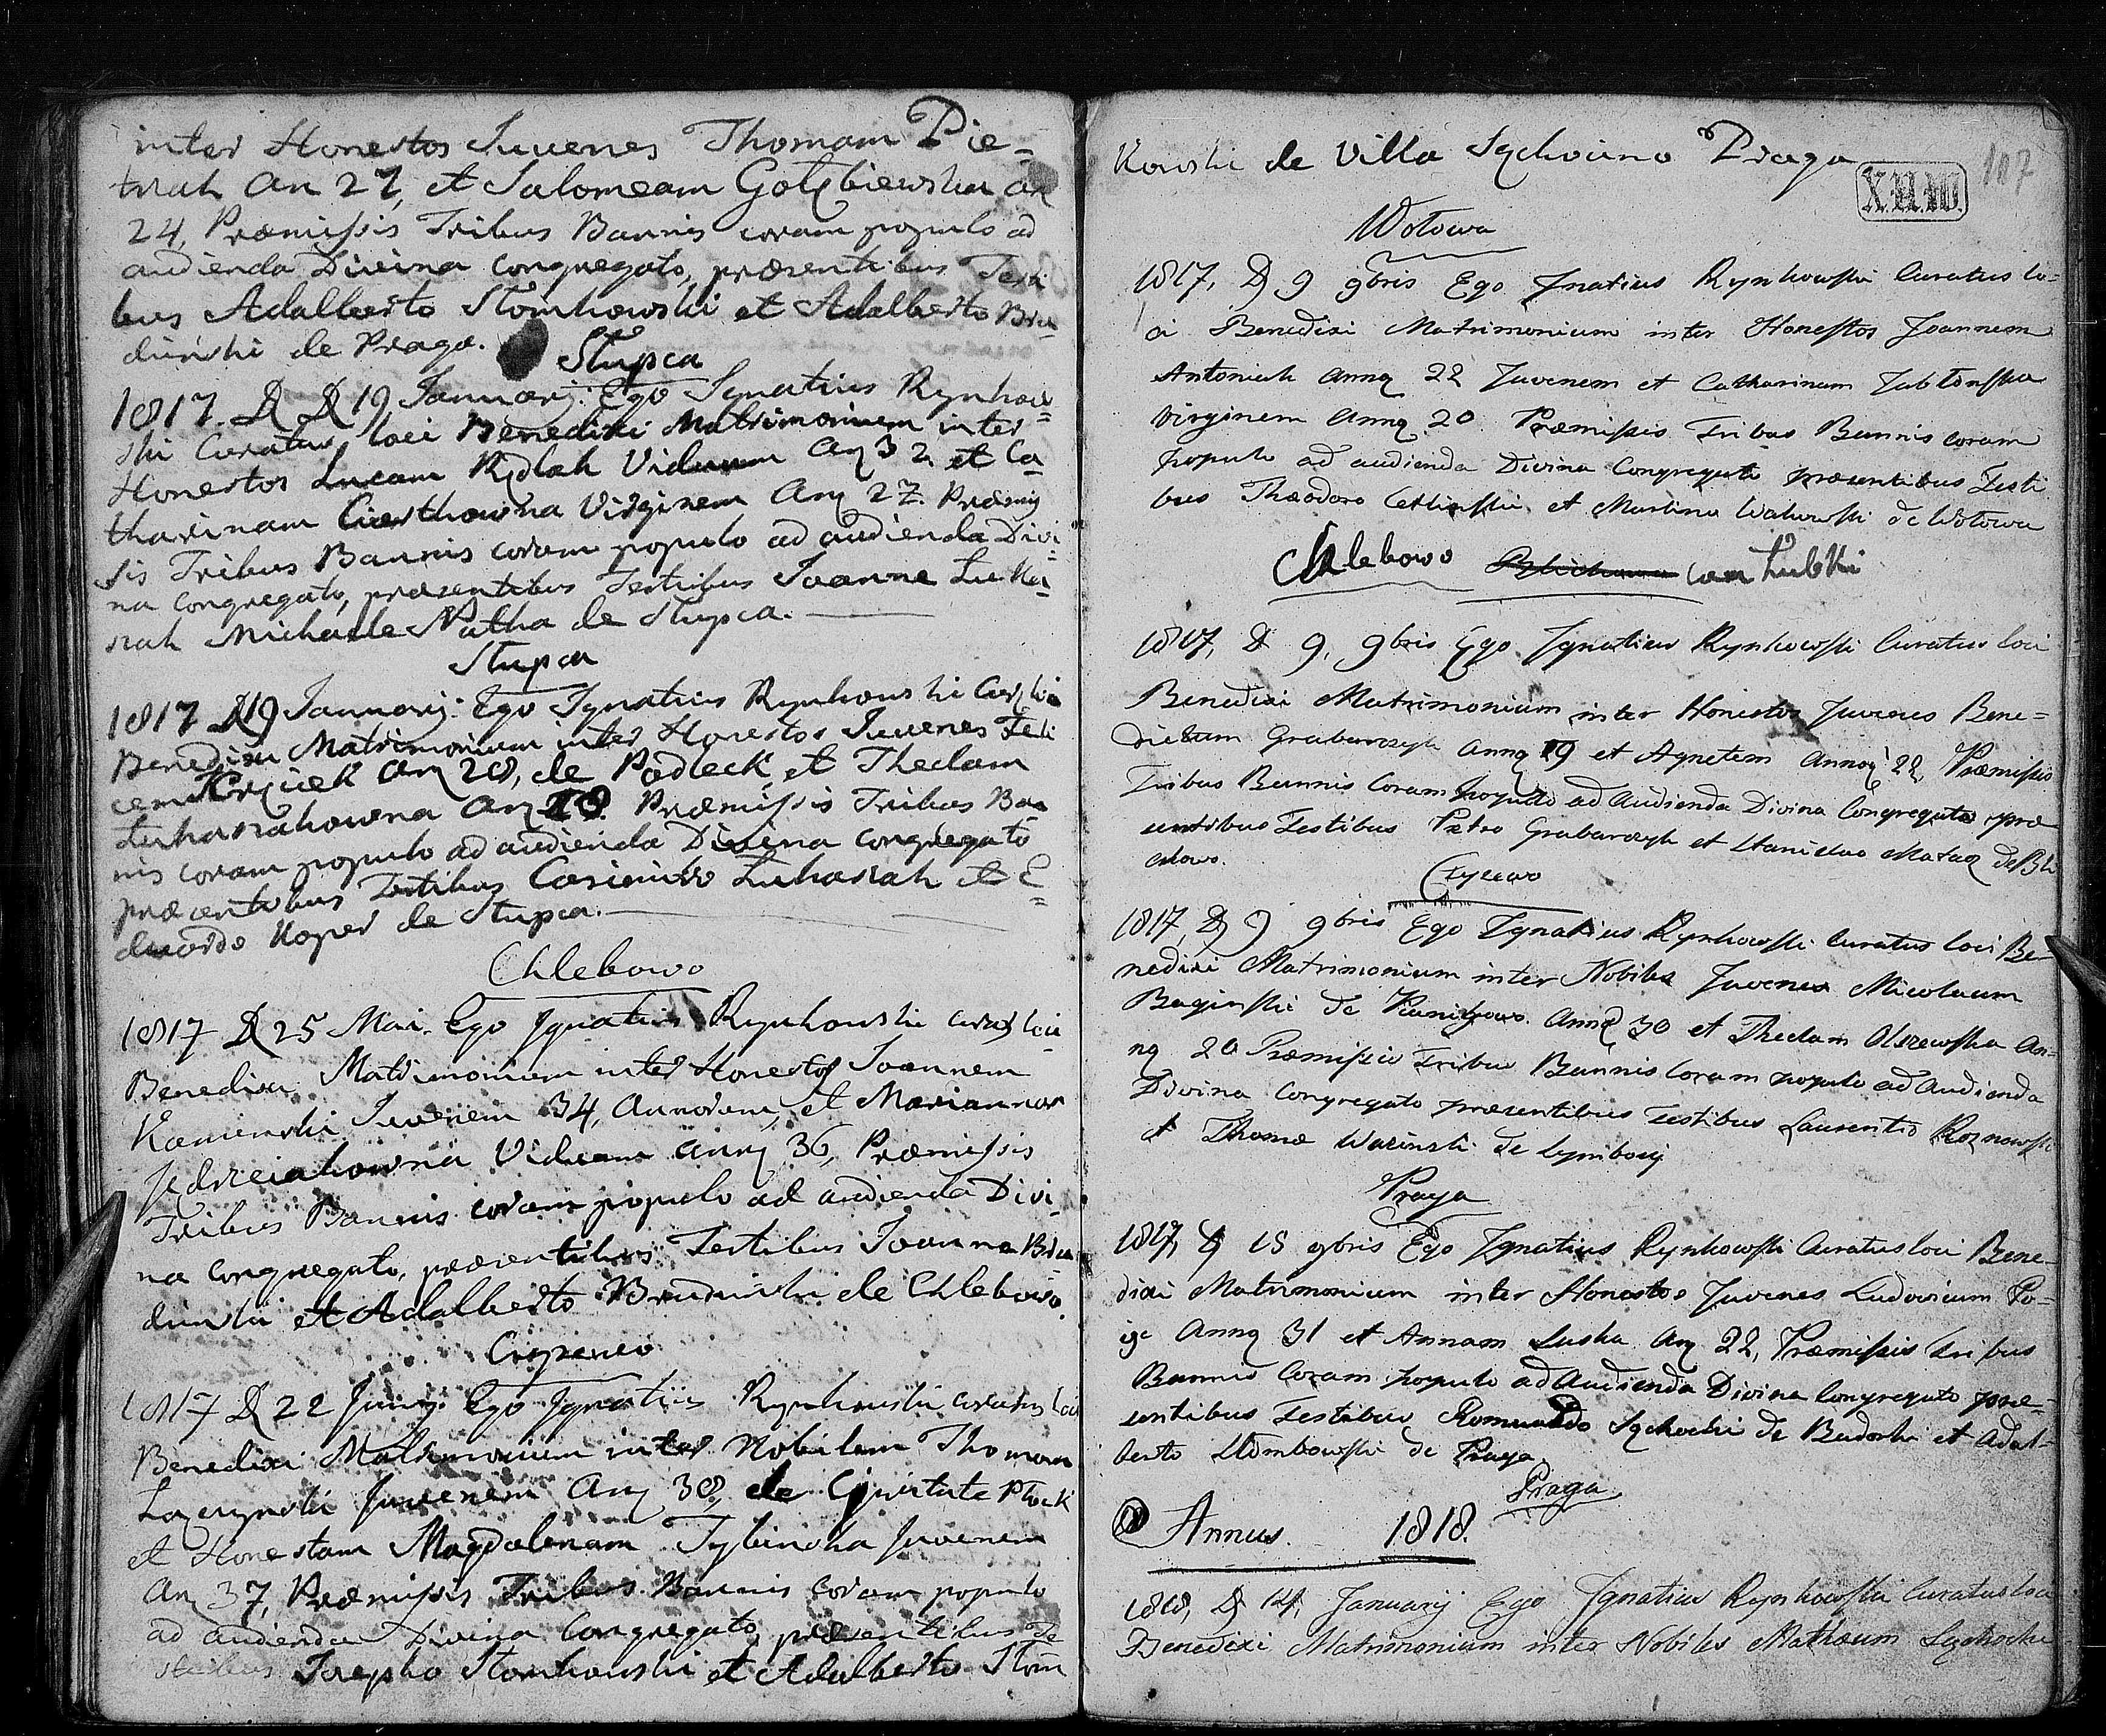 inter Honestos Juvenes Thomam Pie=
trzak An 27, et Salomeam Gołębiewska an
24, Præmissis Tribus Bannis coram populo ad
audienda Divina congregato, præsentibus Testi
bus Adalberto Słomkowski et Adalberto Bru
dziński de Praga.
Słupca
1817. D D 19 Januarij. Ego Ignatius Rynkow=
ski Curatus loci Benedixi Matrimonium inter
Honestos Lucam Rydlak Viduum An 32 et Ca
tharinam Virginem An 27. Præmis
sis Tribus Bannis coram populo ad audienda Divi=
na congregato, præsentibus Testibus Joanne Luka=
siak Michaele Natka de Słupca.
Słupca
1817 D 19 Januarij. Ego Ignatius Rynkowski Cur loci
Benedixi Matrimonium inter Honestos Juvenes Feli
cem an 28, de Podleck et Theclam
Lukasiakowna an Præmissis Tribus Ban
nis coram populo ad audienda Divina congregato
præsentibus Testibus Casimiro Lukasiak et E=
duardo Koper de Słupca.
Chlebowo
1817 D 25 Mai. Ego Ignatius Rynkowski curat loci
Benedixi Matrimonium inter Honestos Joannem
Kamienski Juvenem 34, Annorum, et Mariannam
Jedrzeiakowna Viduam Ann 36, Præmissis
Tribus Bannis coram populo ad audienda Divi=
na congregato, præsentibus Testibus Joanne Bru
dzinski et Adalberto Brudzinski de Chlebowo.
1817 D 22 Junij. Ego Ignatius Rynkowski curatus loci
Benedixi Matrimonium inter Nobilem Thomam
Juvenem An 38, de Civitate Płock
et Honestam Magdalenam Juvenem
An 37, Præmissis Tribus Bannis Coram populo
ad audienda Divina Congregato, præsentibus Te
stibus Josepho Słomkowski et Adalberto Słom
kowski de Villa Sąchocino Praga
107
X.H.W.
Wotowa
1817, D 9 9bris Ego Ignatius Rynkowski Curatus lo=
ci Benedixi Matrimonium inter Honestos Joannem
Antoniak annor 22 Juvenem et Catharinam Jabłonska
Virginem annor 20. Præmissis Tribus Bannis coram
populo ad audienda Divina Congregato præsentibus Testi
bus Theodoro et Martino de Wotowa
Chlebowo
1817, D 9, 9bris Ego Ignatius Rynkowski Curatus loci
Benedixi Matrimonium inter Honestos Juvenes Bene=
dictum Grabarczyk Annor 19 et Agnetem Annor 22, Præmissis
Tribus Bannis Coram populo ad Audienda Divina Congregato præ
sentibus Testibus Petro Grabarczyk et Stanislao de Bli
chowo.
1817, D 9 9bris Ego Ignatius Rynkowski Curatus loci Be=
nedixi Matrimonium inter Nobiles Juvenes Nicolaum
Baginski de Annor 30 et Theclam Olszewska An=
nor 20 Præmissis Tribus Bannis Coram populo ad Audienda
Divina Congregato præsentibus Testibus Laurentio Roznowski
et Thoma de
Praga
1817, D 15 9bris Ego Ignatius Rynkowski Curatus loci Bene=
dixi Matrimonium inter Honestos Juvenes Ludovicum
Annor 31 et Annam An 22, Præmissis tribus
Bannis Coram populo ad Audienda Divina Congregato præ=
sentibus Testibus Romualdo Sąchocki de et Adal=
berto Słomkowski de Praga
Praga
Annus 1818.
1818, D 14, Januarij Ego Ignatius Rynkowski Curatus loci
Benedixi Matrimonium inter Nobiles Mathæum Sąchocki